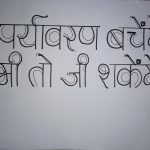 पर्यावरण बचेंगे
भी तो जी शकेंगे